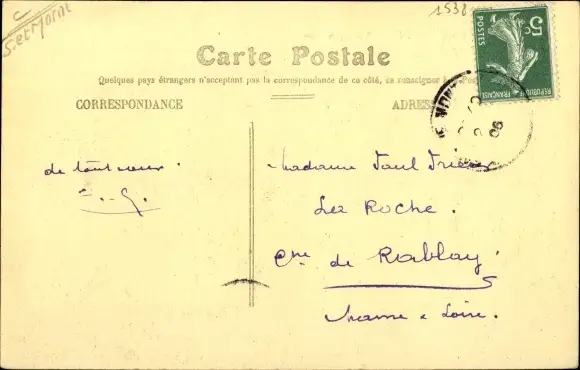 C
S. et Marne
1538
Carte Postale
Quelques pays étrangers n'acceptant pas la correspondance de ce côté, se renseigner
CORRESPONDANCE
ADRES
5c
POSTES
REPUBLIQUE FRANÇAISE
de tout cœur.
E. G.
Madame Paul
La Roche.
Cne de Rablay
Maine & Loire.